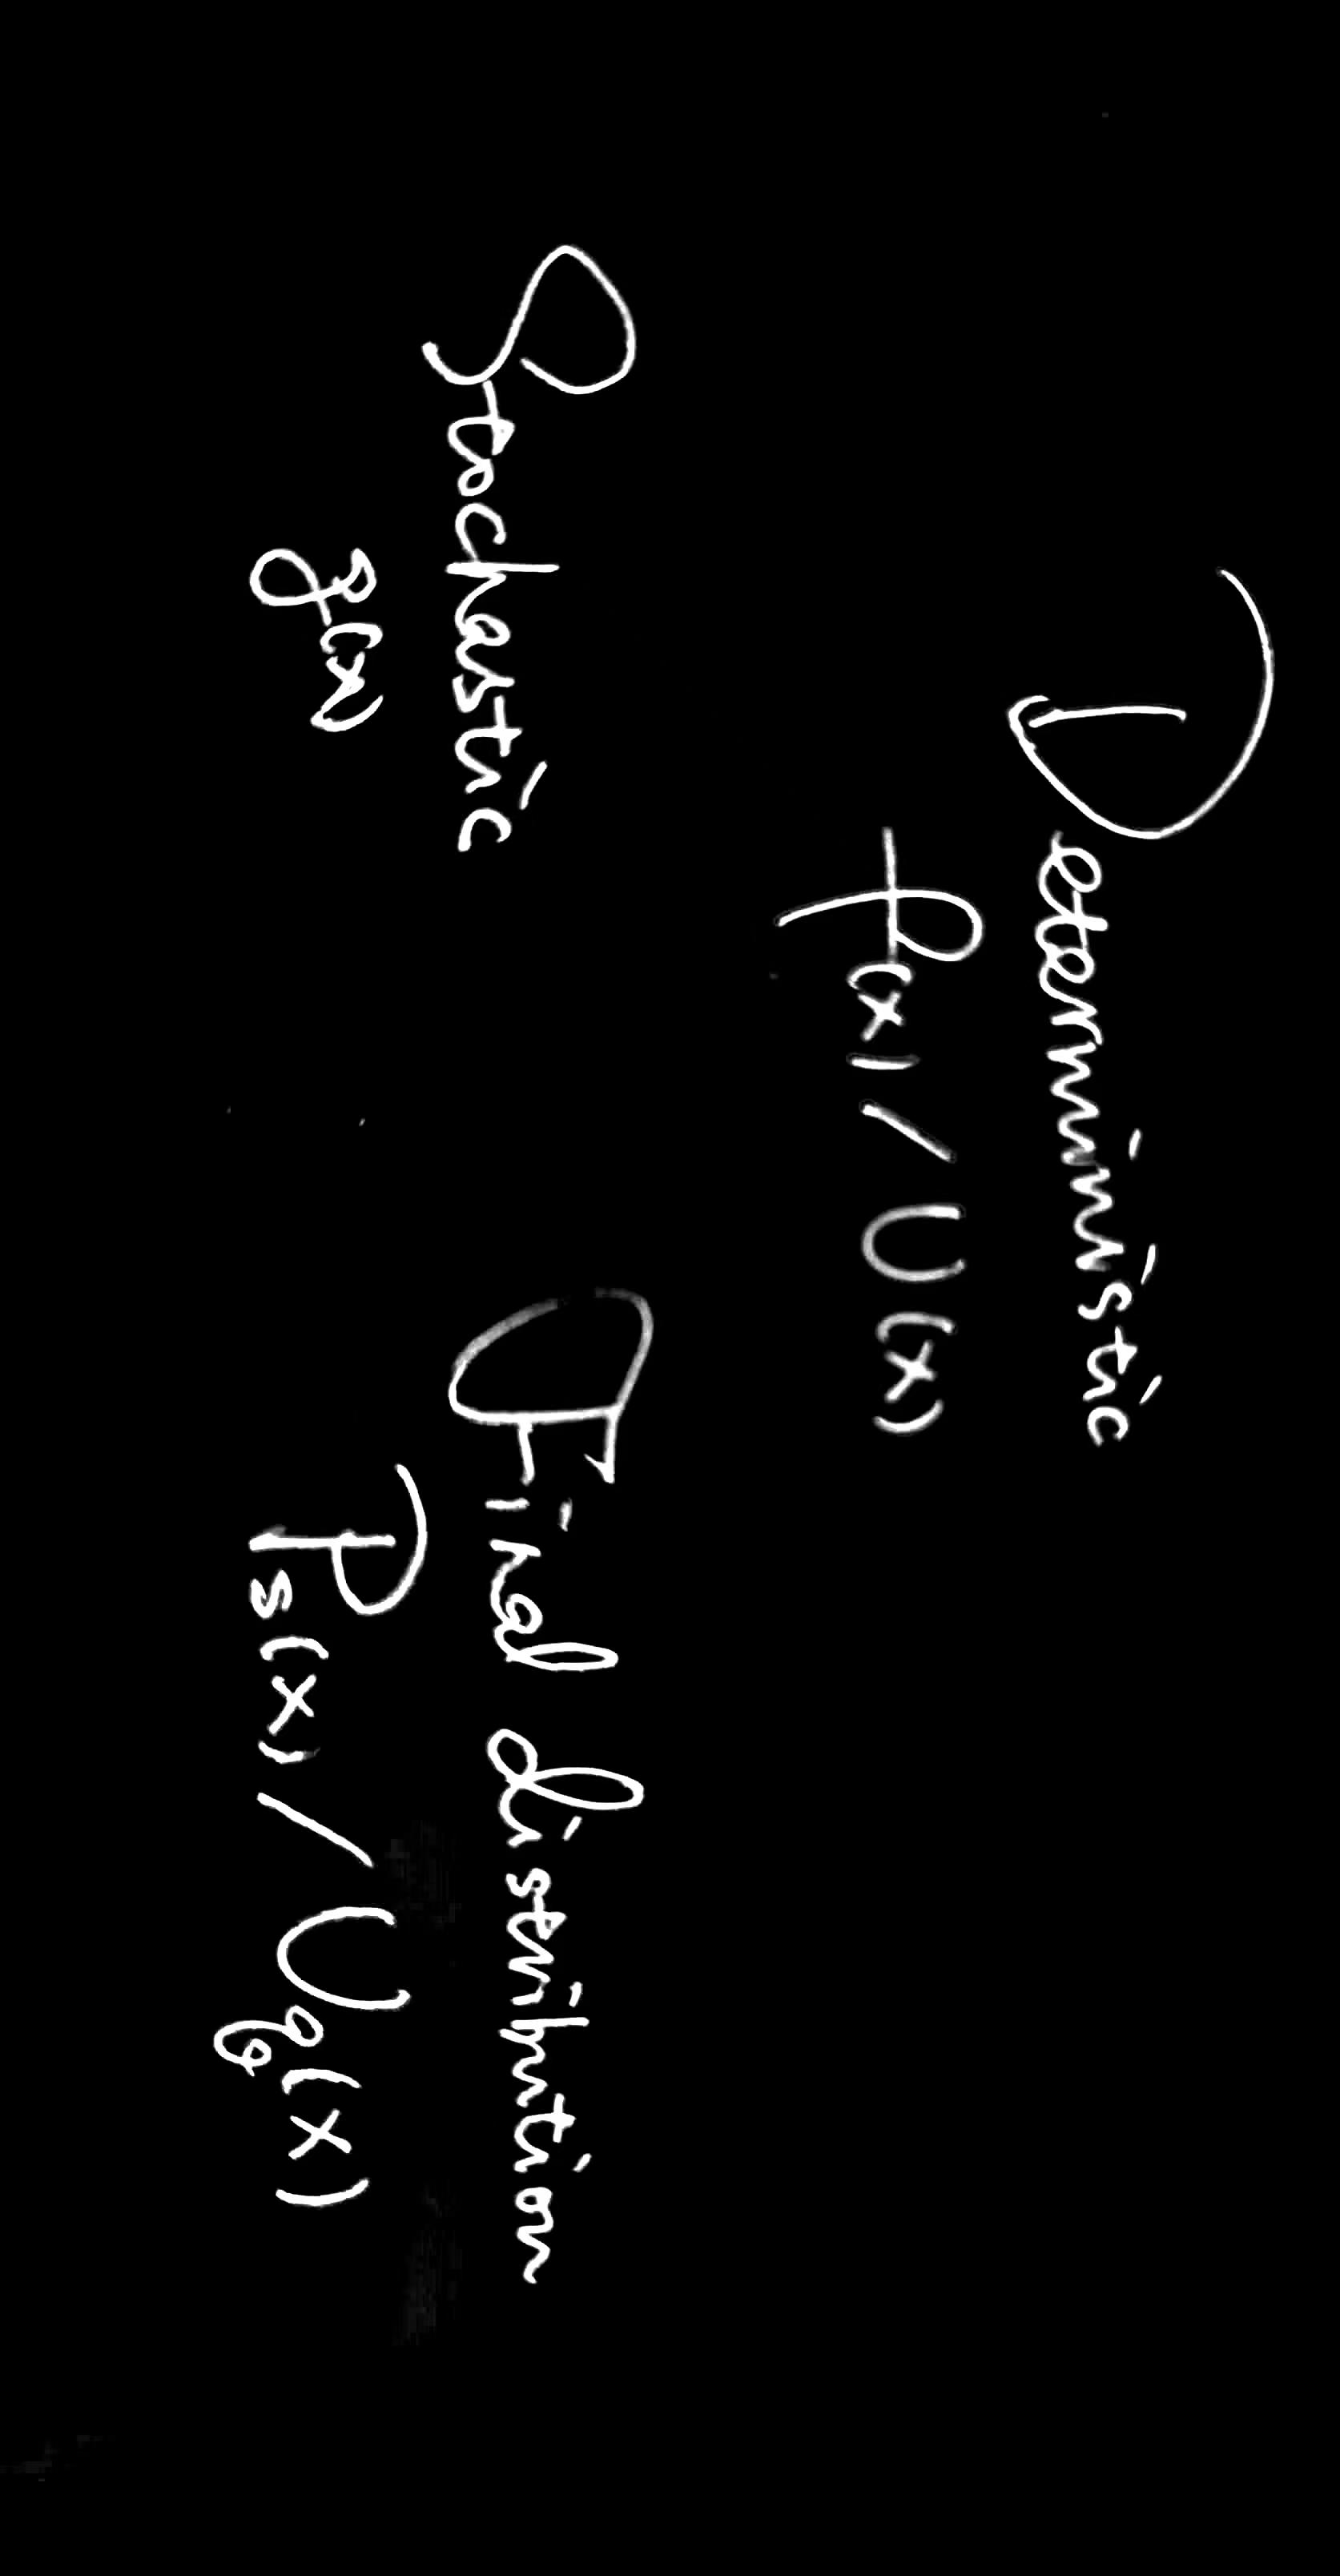 Deterministic
f(x) / U(x)
Stochastic
g(x)
Final distribution
Ps(x) / Ug(x)